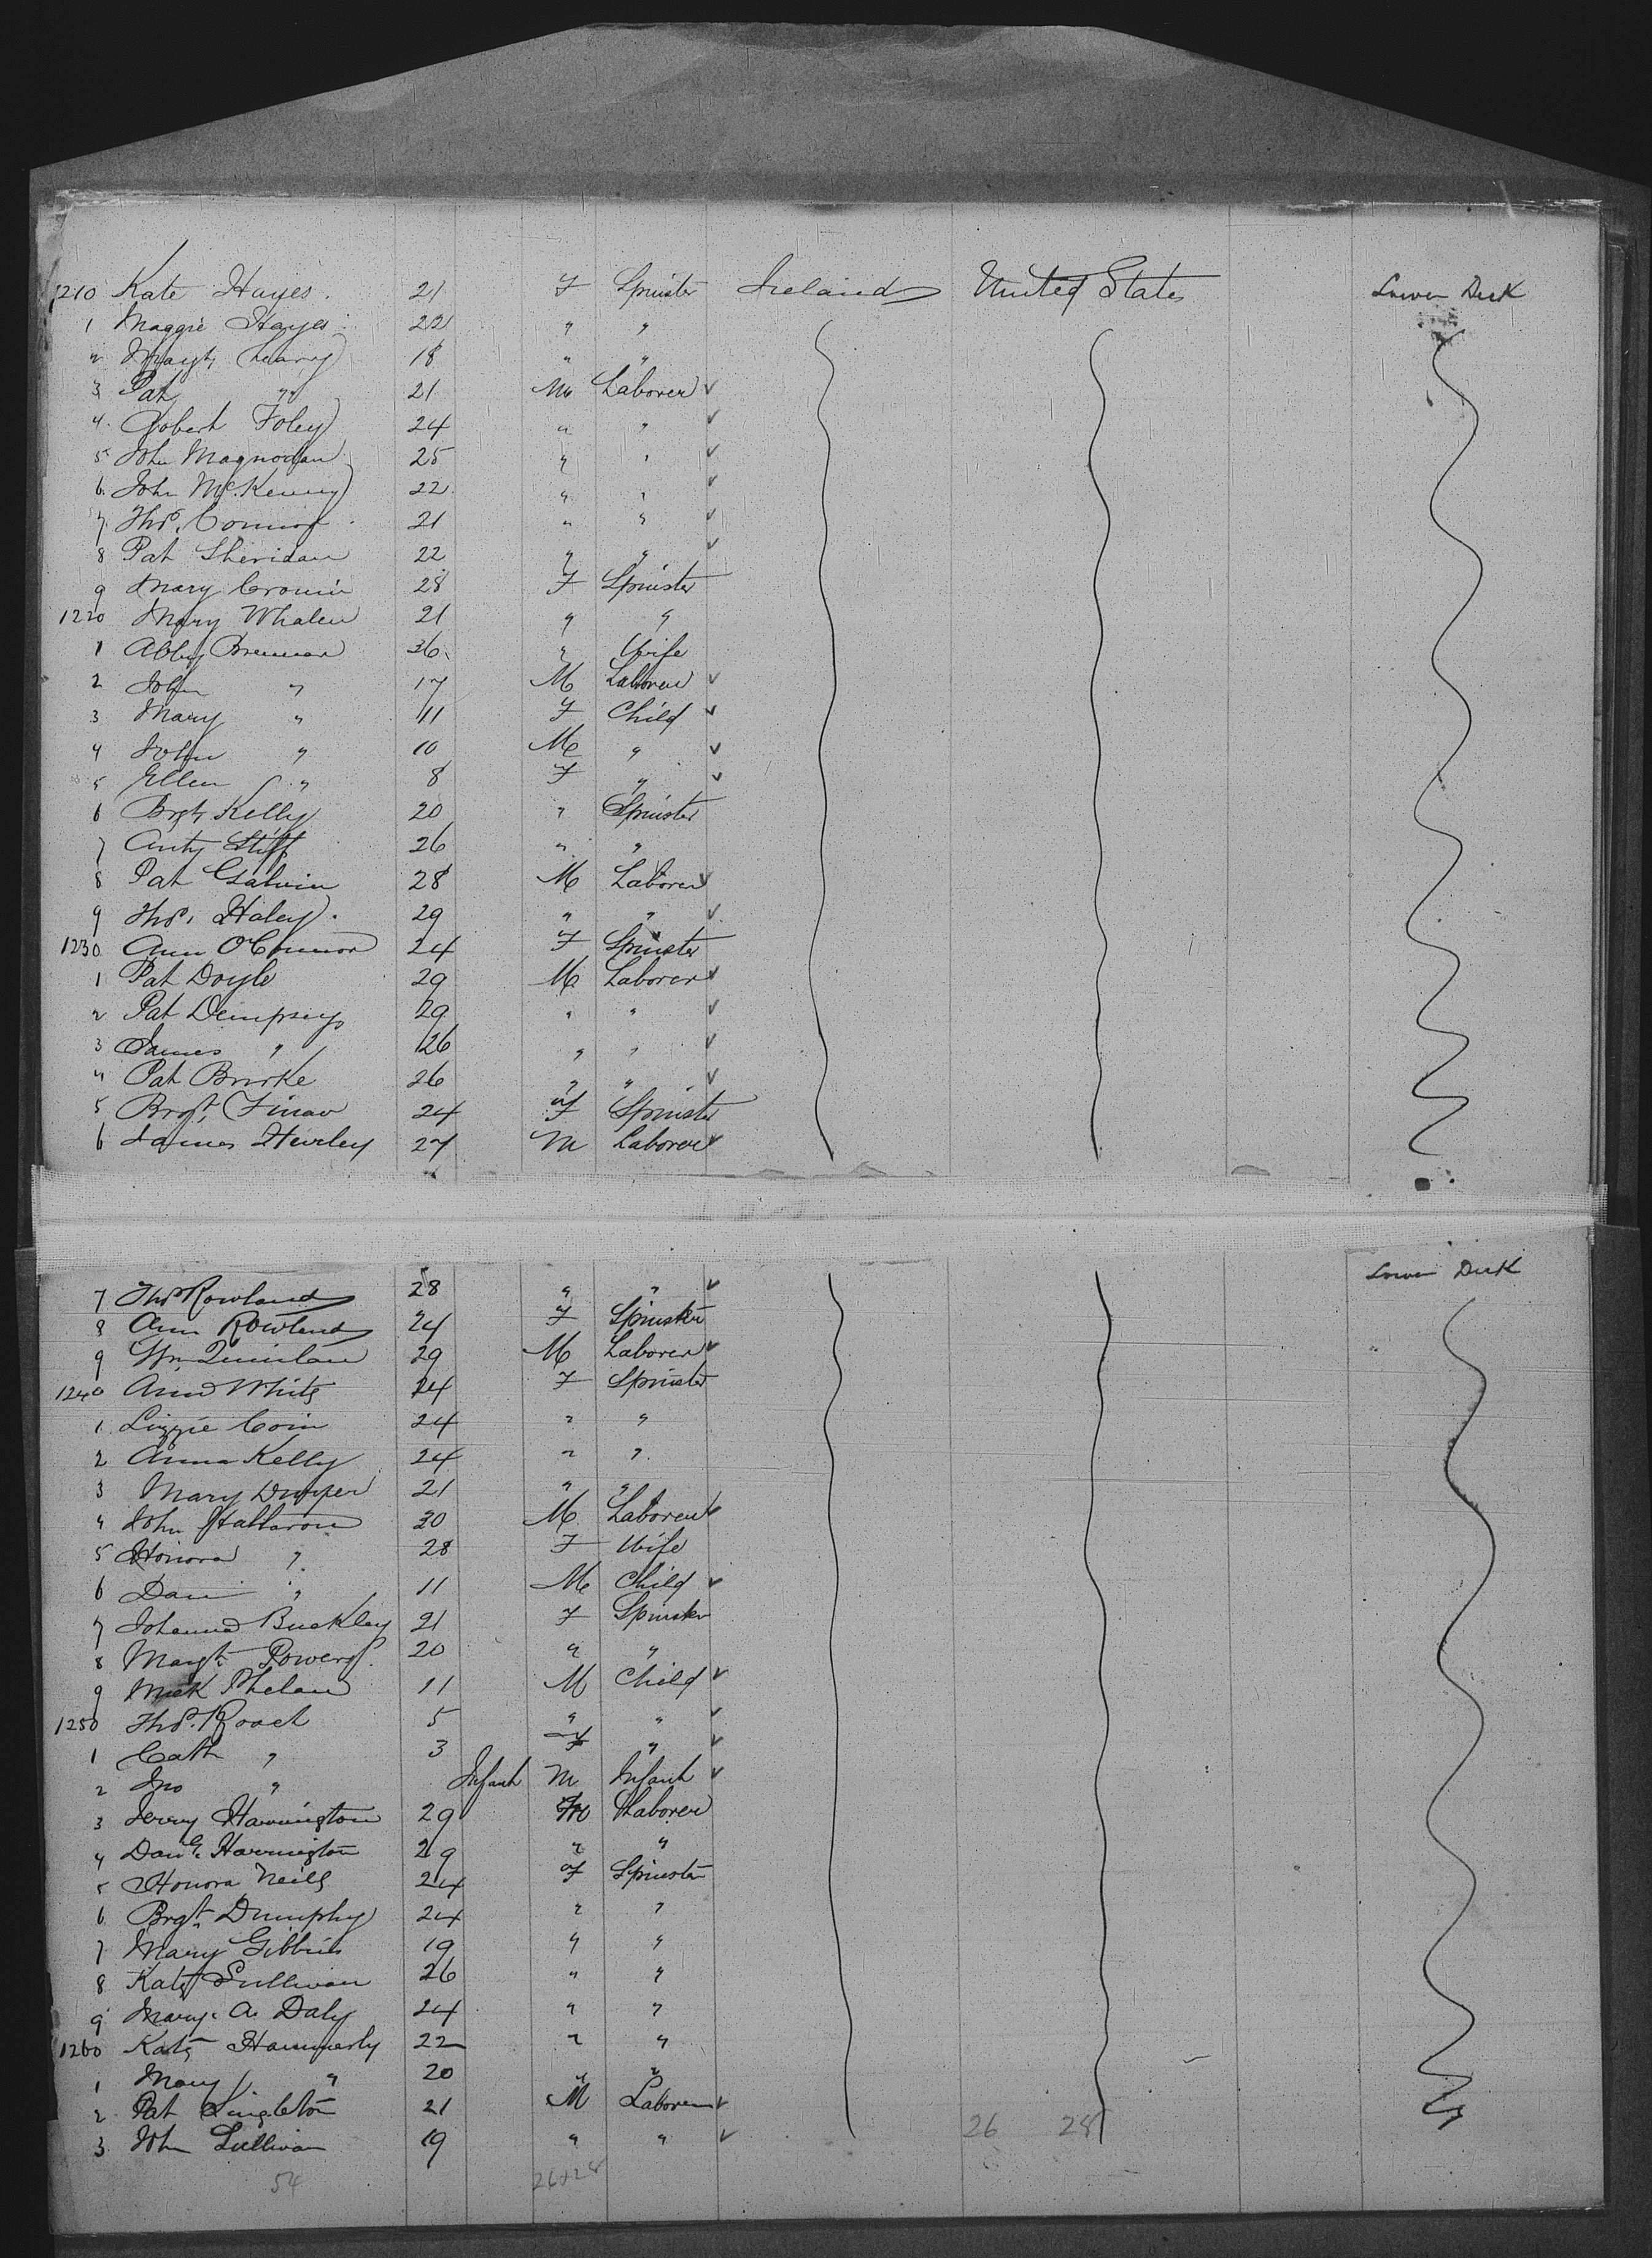 1210 Kate Hayes. 21 F Spinster Ireland United States Lower Deck
1 Maggie Hayes 22 " "
2 Margt Leary 18 " "
3 Pat " 21 M Laborer ✓
4 Robert Foley 24 " " ✓
5 John 25 " " ✓
6 John McKenny 22 " " ✓
7 Thos. Connor 21 " " ✓
8 Pat Sheridan 22 " " ✓
9 Mary Cronin 28 F Spinster
1220 Mary Whalen 21 " "
1 Abby Brennan 36 " Wife
2 John " 17 M Laborer ✓
3 Mary " 11 F Child ✓
4 John " 10 M " ✓
5 Ellen " 8 F " ✓
6 Brgt Kelly 20 " Spinster
7 Anty 26 " "
8 Pat Galvin 28 M Laborer ✓
9 Thos. Haley 29 " " ✓
1230 Ann O'Connor 24 F Spinster
1 Pat Doyle 29 M Laborer ✓
2 Pat Dempsey 29 " " ✓
3 James " 26 " " ✓
4 Pat Burke 26 " " ✓
5 Brgt. Finan 24 F Spinster
6 James Hurley 27 M Laborer ✓
Lower Deck
7 Thos Rowland 28 " " ✓
8 Ann Rowland 24 F Spinster
9 Wm Quinlan 29 M Laborer ✓
1240 Ann White 24 F Spinster
1 Lizzie Coin 24 " "
2 Anna Kelly 24 " "
3 Mary Dwyer 21 " "
4 John Hallaron 30 M Laborer ✓
5 Honora " 28 F Wife
6 Dan " 11 M Child ✓
7 Johanna Buckley 21 F Spinster
8 Margt Powers 20 " "
9 Mick Phelan 11 M Child ✓
1250 Thos. Roach 5 " " ✓
1 Cath " 3 F " ✓
2 Jno " Infant M Infant ✓
3 Jerry Harrington 29 M Laborer
4 Danl. Harrington 29 " "
5 Honora Neill 24 F Spinster
6 Brgt. Dumphy 24 " "
7 Mary Gibbins 19 " "
8 Kate Sullivan 26 " "
9 Mary A. Daly 24 " "
1260 Kate Hammerly 22 " "
1 Mary " 20 " "
2 Pat Singleton 21 M Laborer ✓
3 John Sullivan 19 " " ✓
26 28
54 26+28